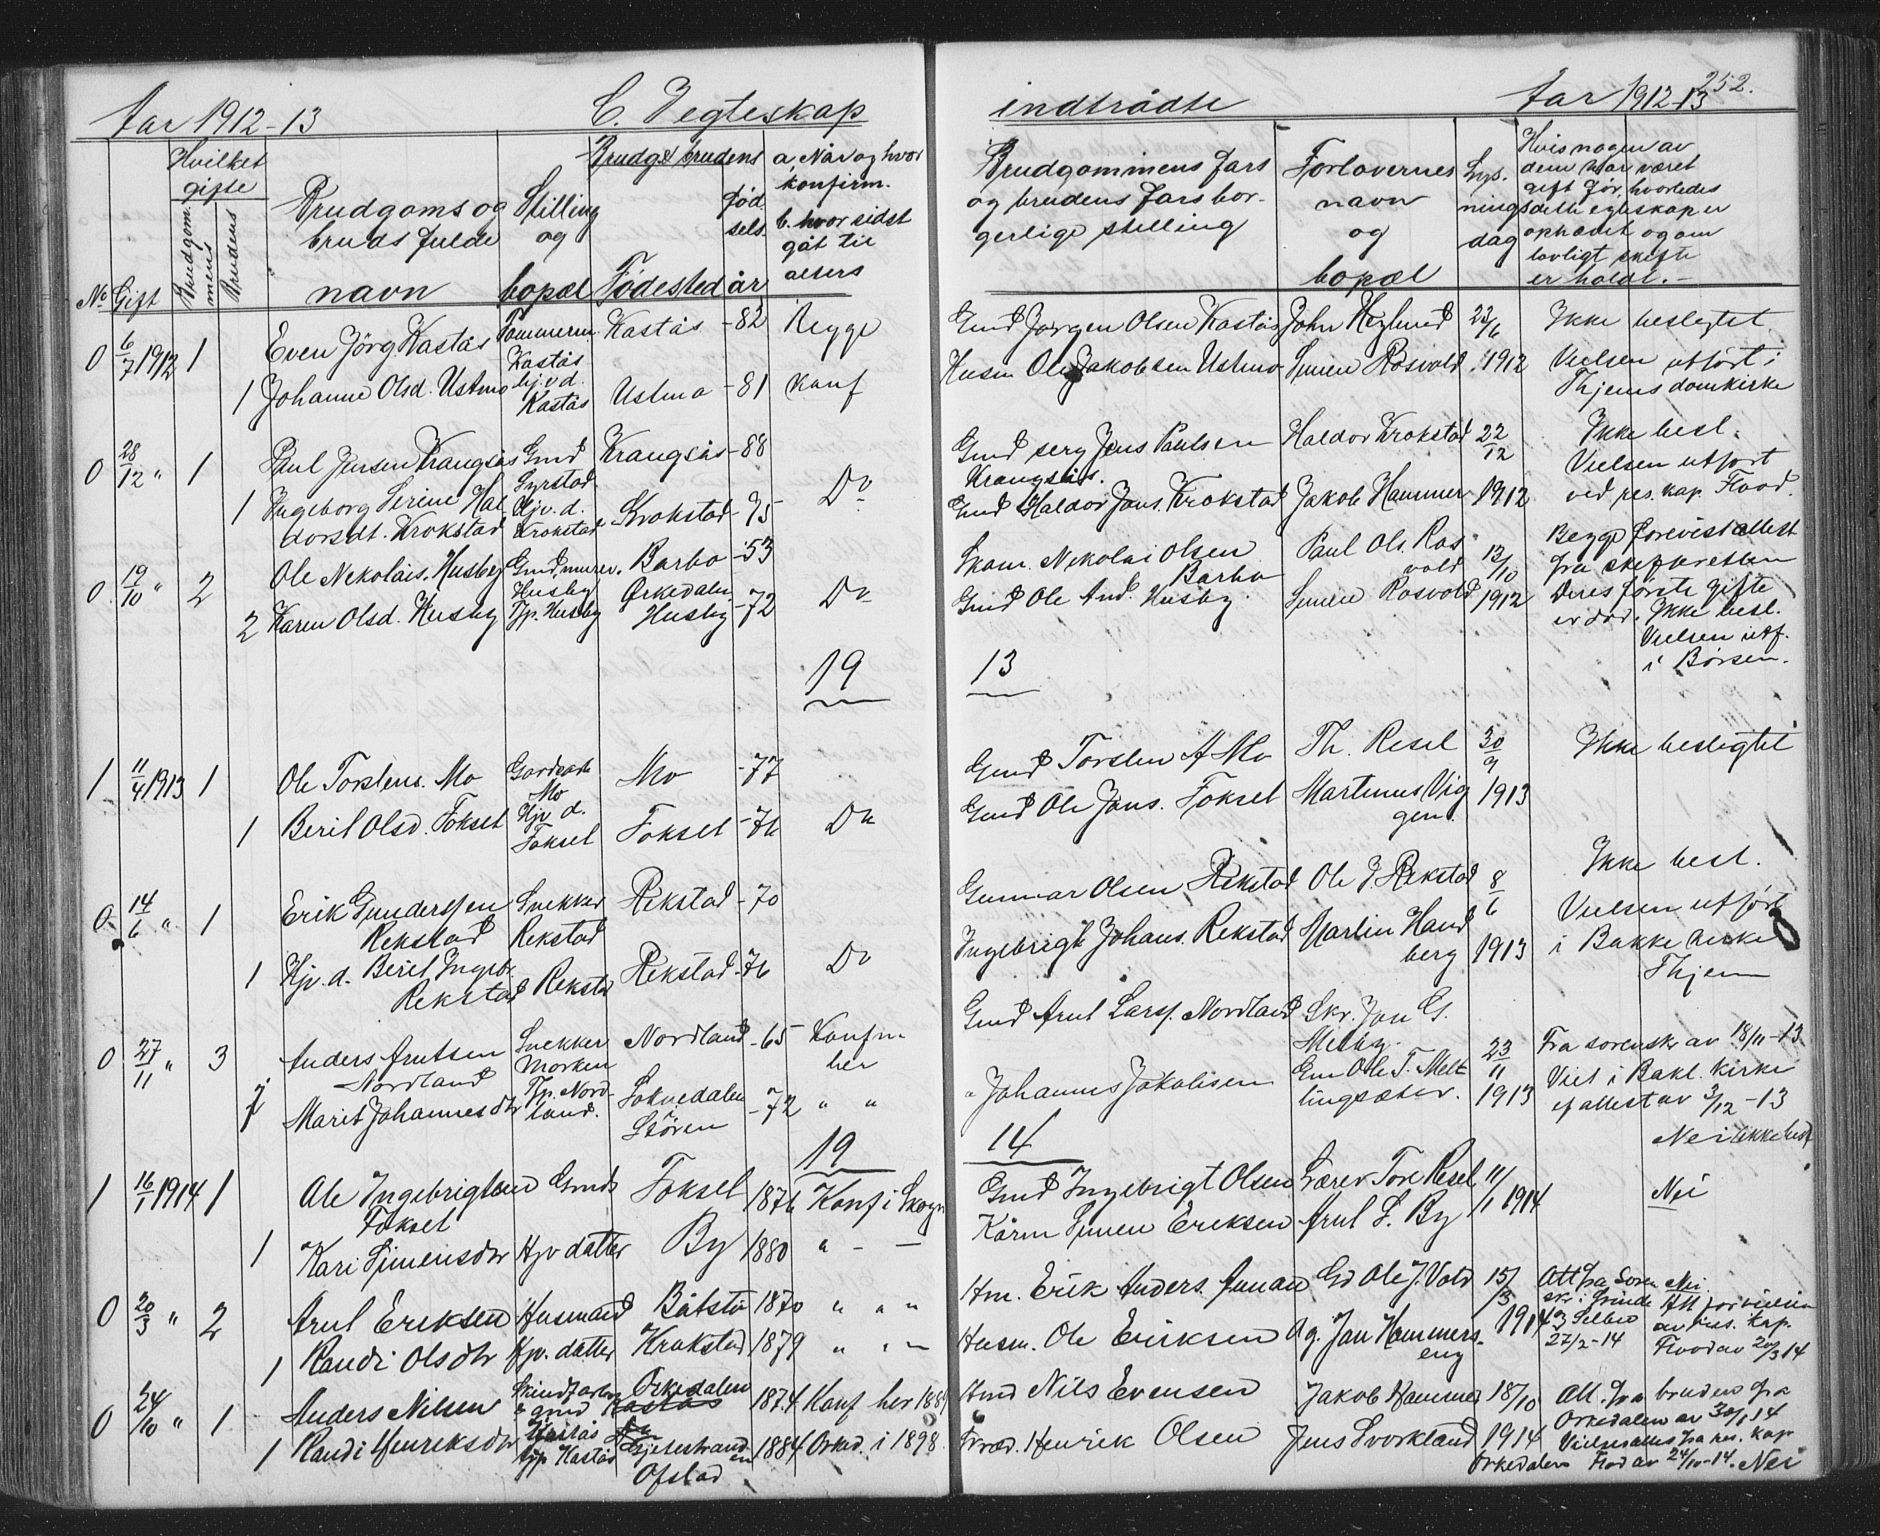 Aar 1912-13
C. Ægteskap
Hvilket
gifte
Brudg. & brudens
a, Når og hvor
konfirm.
b. hvor sidst
gåt til
alters
No
Gift
Brudgom.
mens
Brudens
Brudgoms og
bruds fulde
navn
Stilling
og
bopæl
Fødested
fød
sels
år
0 6/7 1912 1 Even Jörg Kastås Tømmerm. Kastås -82 Begge
Kastås
1 Johanne Olsd. Ustmo Hjv. d. Ustmo -81 konf
Kastås
0 28/12 " 1 Paul Jensen Krangsås Gmd Krangsås -88
Syrstad
1 Ingeborg Serine Hal- Hjv. d. Krokstad -95 Do
dorsdt. Krokstad Krokstad
0 19/10 " 2 Ole Nekolais. Husby Gmd, murer. Barbo -53
Husby Orkedalen
2 Karen Olsd. Husby Tjp. Husby Husby -72 Do
19
1 11/4 1913 1 Ole Torstens. Mo Mo -77
Mo
1 Beril Olsd. Foksel Hjv d. Foksel -76 Do
Foksel
0 14/6 " 1 Erik Gunderssen Snekker Rekstad -70
Rekstad Rekstad
1 Hjv. d. Beret Ingebr. Rekstad -76 Do
Rekstad Rekstad
0 27/11 " 3 Anders Arntsen Snekker Nordland -65 Konfm
Nordland Morken her
Marit Johannesdtr Tjp. Nord- Soknedalen -72 " "
land. Stören
19
1 16/1 1914 1 Ole Ingebrigtsen Gmds Foksel 1876 Konf i Skogn
Foksel
1 Kari Simensdtr Hjv datter By 1880 " - -
0 20/3 " 2 Arnt Eriksen Husmand Båtstø 1870 " " "
1 Randi Olsdtr Hjv. datter Krokstad 1879 " " "
0 24/10 " 1 Anders Nilsen Skindfarber Orkedalen 1874 Konf her 1889
& gmd Kastås
1 Randi Henriksdtr Kastås Gjeterstrand 1884 Orked. i 1898.
tjp Kastås en
Ofstad
indtrådte
Aar 1912-13
252.
Brudgommens fars
og brudens fars bor-
gerlige stilling
Forlovernes
navn
og
bopæl
Lys-
nings
dag
Hvis nogen av
dem har været
gift før, hvorledes
dette egteskap er
ophævet og om
lovligt skifte
er holdt. -
Gmd Jørgen Olsen Kastås John Høglund 23/6 Ikke beslegtet
Husm Ole Jakobsen Ustmo Simen Rosvold 1912 Vielsen utført i
Thjems domkirke
Gmd serg Jens Paulsen Haldor Krokstad 22/12 Ikke besl.
Krangsås. Vielsen utført
Gmd Haldor Jans. Krokstad Jakob Hammer 1912 ved pes. kap. Flood.
Skom. Nekolai Olsen Paul Ols. Ros 13/10 Begge forevist attest
Barbo vold fra skifteretten
Gmd Ole And. Husby. Simen Rosvold 1912 Deres første gifte
er død. Ikke besl.
Vielsen utf.
i Børsen.
13
Gmd Torsten A Mo Th. Resel 30/9 Ikke beslegtet
Gmd Ole Jans. Foksel Martinus Vig 1913
gen.
Gunnar Olsen Rekstad Ole J. Rekstad 8/6 Ikke besl.
Vielsen utført
Ingebrigt Johans. Rekstad Martin Hand 1913 i Bakke kirke
berg Thjem
Gmd Arnt Larss. Nordland Skr. Jon G.
Melby. Fra sorenskr av 18/11-13
" Johannes Jakobsen Em Ole T. Melt 23/11 Viet i Bakl. kirke
lingsæter. 1913 ef attest av 3/12-13
Nei ikke besl
14
Gmd Ingebrigt Olsen Lærer Tore Resel 11/1 1914 Nei
Kårm Simen Eriksen Arnt S. By
Hm. Erik Anders. Gd Ole J. Vold 15/3 Att fra Soren Nei
skr. i Strinde Att for vielsen
Husm. Ole Eriksen Og. Jon Hammers- 1914 og Selbo av res. kap.
eng 27/2-14 Flood av 20/3 14
Gmd Nils Evensen Jakob Hammer 18/10 Att. fra bruden fra
Orkedalen av 30/1 14
Henrik Olsen Jens Svorkland 1914 Vielsesattes fra res. kap
Orkedalen Flod av 24/10-14. Nei